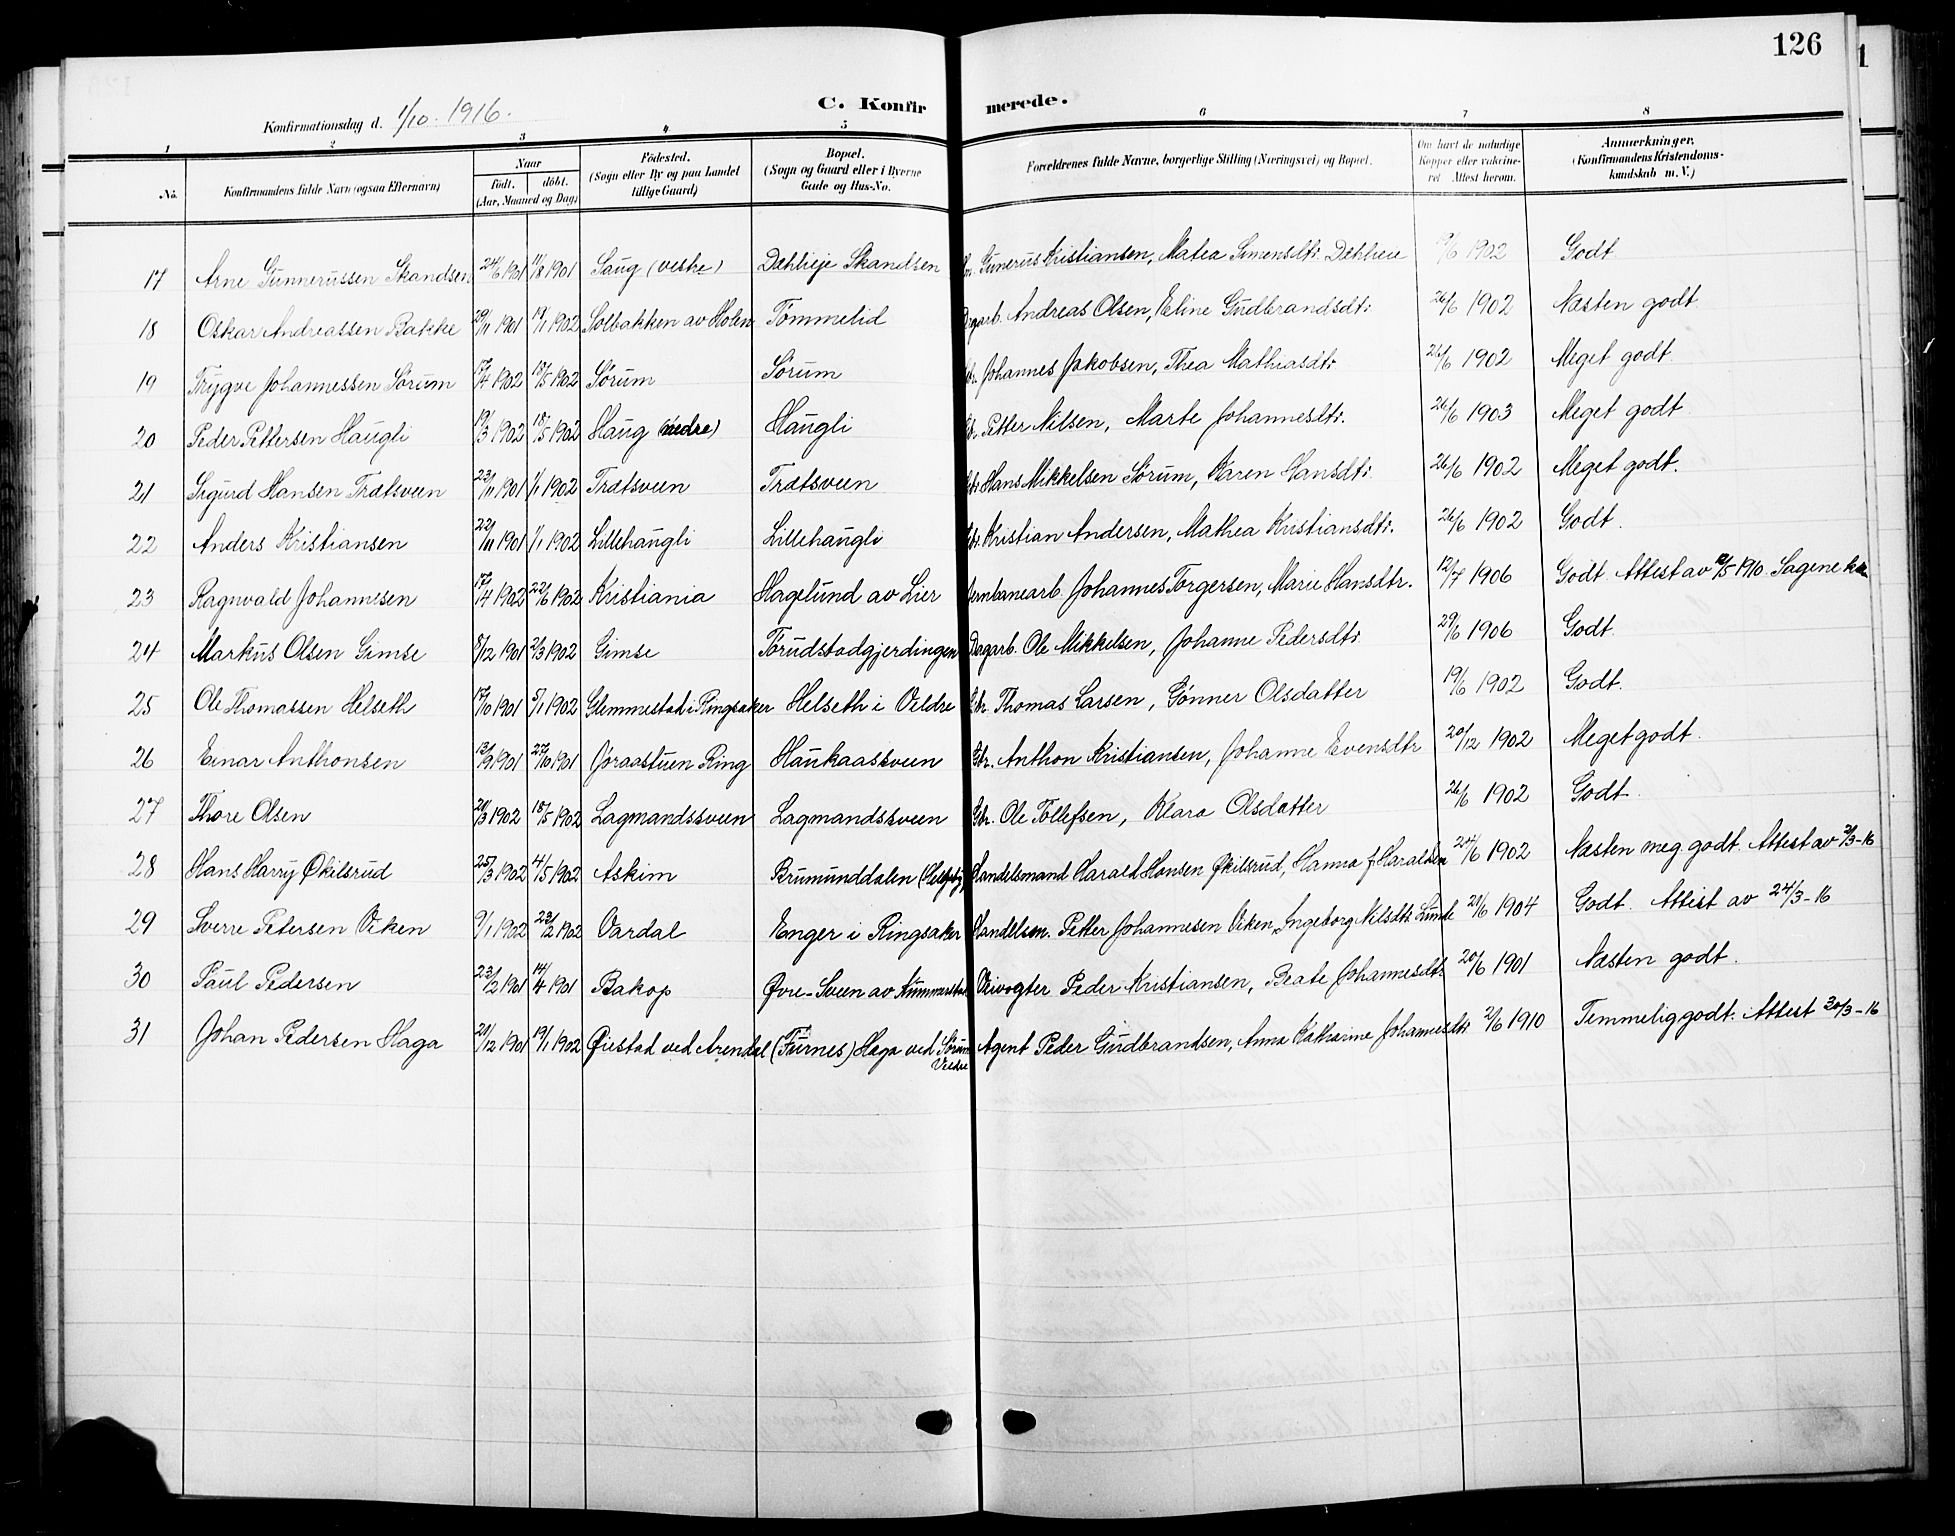 126
Konfirmationsdag d. 1/10. 1916.
C. Konfirmerede.
1 2 3 4 5 6 7 8
No. Konfirmandens fulde Navn (ogsaa Efternavn) Naar födt. döbt. (Aar, Maaned og Dag) Födested. (Sogn eller By og paa Landet tillige Gaard) Bopæl. (Sogn og Gaard eller i Byerne Gade og Hus-No. Forældrenes fulde Navne, borgerlige Stilling (Næringsvei) og Bopæl. Om havt de naturlige Kopper eller vaccineret Attest herom. Anmærkninger. (Konfirmandens Kristendomskundskab m. V.)
17 Arne Gunnerussen Skandsen 24/6 1901 11/8 1901 Saug (veske) Dæhlieje Skandsen Gunerus Kristiansen, Matea Simensdtr. Dæhlieie 1902 Godt
18 Oskar Andreassen Bakke 29/11 1901 19/1 1902 Solbakken av Holen Tømmelid Dagarb. Andreas Olsen, Eline Gudbrandsdtr. 26/6 1902 Næsten godt
19 Trygve Johannessen Sørum 17/4 1902 18/5 1902 Sørum Sørum Gbr. Johannes Jakobsen, Thea Mathiasdtr. 26/6 1902 Meget godt.
20 Peder Pettersen Haugli 19/3 1902 18/5 1902 Haug (nedre) Haugli Gbr. Petter Nilsen, Marte Johannesdtr. 26/6 1903 Meget godt
21 Sigurd Hansen Trætsveen 23/11 1901 1/1 1902 Trætsveen Trætsveen Gbr. Hans Mikkelsen Sørum, Karen Hansdtr. 26/6 1902 Meget godt.
22 Anders Kristiansen 22/11 1901 1/1 1902 Lillehaugli Lillehaugli Gbr. Kristian Andersen, Mathea Kristiansdtr. 26/6 1902 Godt.
23 Ragnvald Johannesen 17/4 1902 22/6 1902 Kristiania Hagelund av Lier Jernbanearb. Johannes Torgersen, Marie Hansdtr. 12/7 1906 Godt. Attest av /5-1910. Sagene
24 Markus Olsen Gimse 8/12 1901 2/3 1902 Gimse Torudstadgjerdingen Dagarb. Ole Mikkelsen, Johanne Pedersdtr. 29/6 1906 Godt.
25 Ole Thomassen Helseth 17/10 1901 5/1 1902 Glemmestad i Ringsaker Helseth i Veldre Gbr. Thomas Larsen, Gønner Olsdatter 19/6 1902 Godt.
26 Einar Anthonsen 13/9 1901 27/10 1901 Jøraastuen Ring Haukaassveen Gbr. Anthon Kristiansen, Johanne Evensdtr 20/12 1902 Meget godt.
27 Thore Olsen 20/3 1902 18/5 1902 Lagmandssveen Lagmandssveen Gbr. Ole Tollefsen, Klara Olsdatter 26/6 1902 Godt.
28 Hans Harry Økilsrud 25/3 1902 4/5 1902 Askim Brumunddalen Handelsmand Harald Hansen Økilsrud, Hanna f. Haraldsen 24/6 1902 Næsten meg. godt. Attest av 3/3-16
29 Sverre Petersen Viken 9/1 1902 23/2 1902 Vardal Enger i Ringsaker Handelsm. Petter Johannesen Viken, Ingeborg Nilsdtr Lunde 21/6 1904 Godt. Attest av 24/3-16
30 Paul Pedersen 23/2 1901 14/4 1901 Bakop Øvre-Sveen av Kummerstad Veivogter Peder Kristiansen, Beate Johannesdtr. 20/6 1901 Næsten godt.
31 Johan Pedersen Haga 21/12 1901 19/1 1902 Øiestad ved Arendal (Furnes) Haga ved Sørum Veldre Agent Peder Gudbrandsen, Anna Katharine Johannesdtr. 2/6 1910 Temmelig godt. Attest 30/3-16